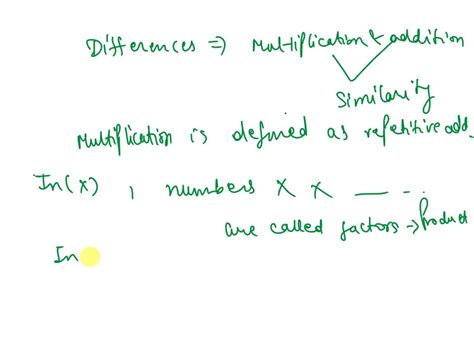 Differences ⇒ Multiplication & addition
Similarity
Multiplication is defined as repetitive add
In (x) , numbers X X — - .
are called factors → Product
In